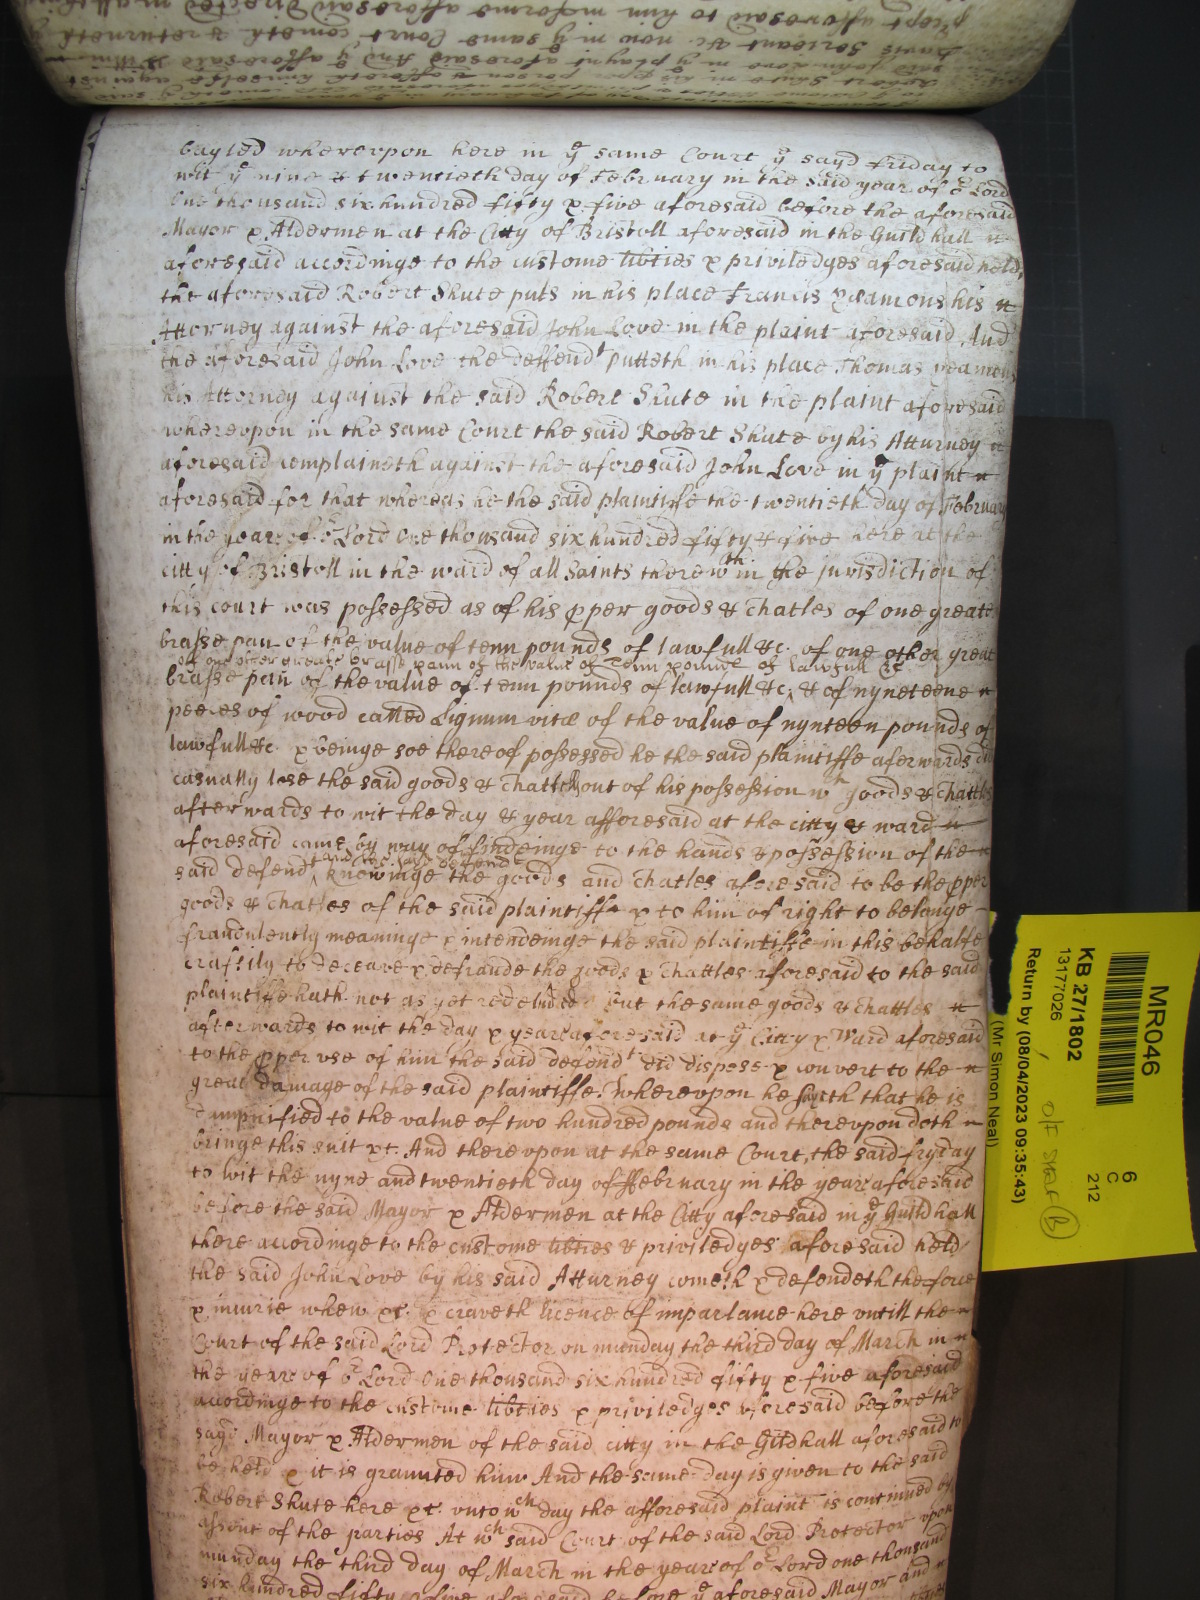 bayled wherevpon here in yᵉ same Court yᵉ sayd friday to
wit yᵉ nine & twentieth day of February in the said year of oʳ Lord
One thousand six hundred fifty & five aforesaid before the aforesaid
Mayor & Aldermen at the Citty of Bristoll aforesaid in the Guild hall
aforesaid accordinge to the custome libties & priviledges aforesaid held,
the aforesaid Robert Shute puts in his place Francis yeamons his
Attorney against the aforesaid John Love in the plaint aforesaid And
the aforesaid John Love the deffendᵗ putteth in his place Thomas yeamons
his Attorney against the said Robert Shute in the plaint aforesaid
wherevpon in the same Court the said Robert Shute by his Atturney
aforesaid complaineth against the aforesaid John Love in yᵉ plaint
aforesaid for that whereas he the said plaintiffe the twentieth day of February
in the yeare of oʳ Lord One thousand six hundred fifty & five here at the
citty of Bristoll in the ward of all Saints there wᵗʰin the jurisdiction of
this court was possessed as of his pper goods & Chatles of one greate
brasse pan of the value of tenn pounds of lawfull &c. of one other great
of one other greate brasse pann of the value of Tenn pounds of lawfull &c
brasse pan of the value of tenn pounds of lawfull &c, & of nyneteene
peeces of wood called Lignum vitæ of the value of nynteen pounds of
lawfull &c & beinge soe thereof possessed he the said plaintiffe aferwards did
casually lose the said goods & Chattells out of his possession wᶜʰ goods & Chattles
afterwards to wit the day & year afforesaid at the citty & ward
aforesaid came by way of findeinge to the hands & possession of the
and the said defendᵗ
said defendᵗ knowinge the goods and Chatles aforesaid to be the pper
goods & Chatles of the said plaintiffe & to him of right to belonge
fraudulently meaninge & intendeinge the said plaintiffe in this behalfe
craftily to deceave & defraude the goods & Chattles aforesaid to the said
plaintiffe hath not as yet redelivered but the same goods & Chattles
afterwards to wit the day & yeare aforesaid at yᵉ Citty & Ward aforesaid
to the pper vse of him the said defendᵗ did dispose & convert to the
great damage of the said plaintiffe. Wherevpon he sayth that he is
dampnified to the value of two hundred pounds and therevpon doth
bringe this suit &c. And therevpon at the same Court, the said fryday
to wit the nyne and twentieth day of ffebruary in the yeare aforesaid
before the said Mayor & Aldermen at the Citty aforesaid in yᵉ Guildhall
there accordinge to the custome libties & priviledges aforesaid held
the said John Love by his said Atturney cometh & defendeth the force
& iniurie when &c. & craveth licence of imparlance here vntill the
Court of the said Lord Protector on munday the third day of March in
the yeare of oʳ Lord One thousand six hundred fifty & five aforesaid
accordinge to the custome libties & priviledges aforesaid before the
sayd Mayor & Aldermen of the said citty in the Gildhall aforesaid to
be held & it is graunted him And the same day is given to the said
Robert Shute here &c. vnto wᶜʰ day the afforesaid plaint is continued by
assent of the parties At wᶜʰ said Court of the said Lord Protector vpon
munday the third day of March in the yeare of oʳ Lord one thousand
six hundred fifty & five aforesaid before yᵉ aforesaid Mayor and
MR046
6
C
212
KB 27/1802
13177026
Return by (08/04/2023 09:35:43)
(Mr Simon Neal)